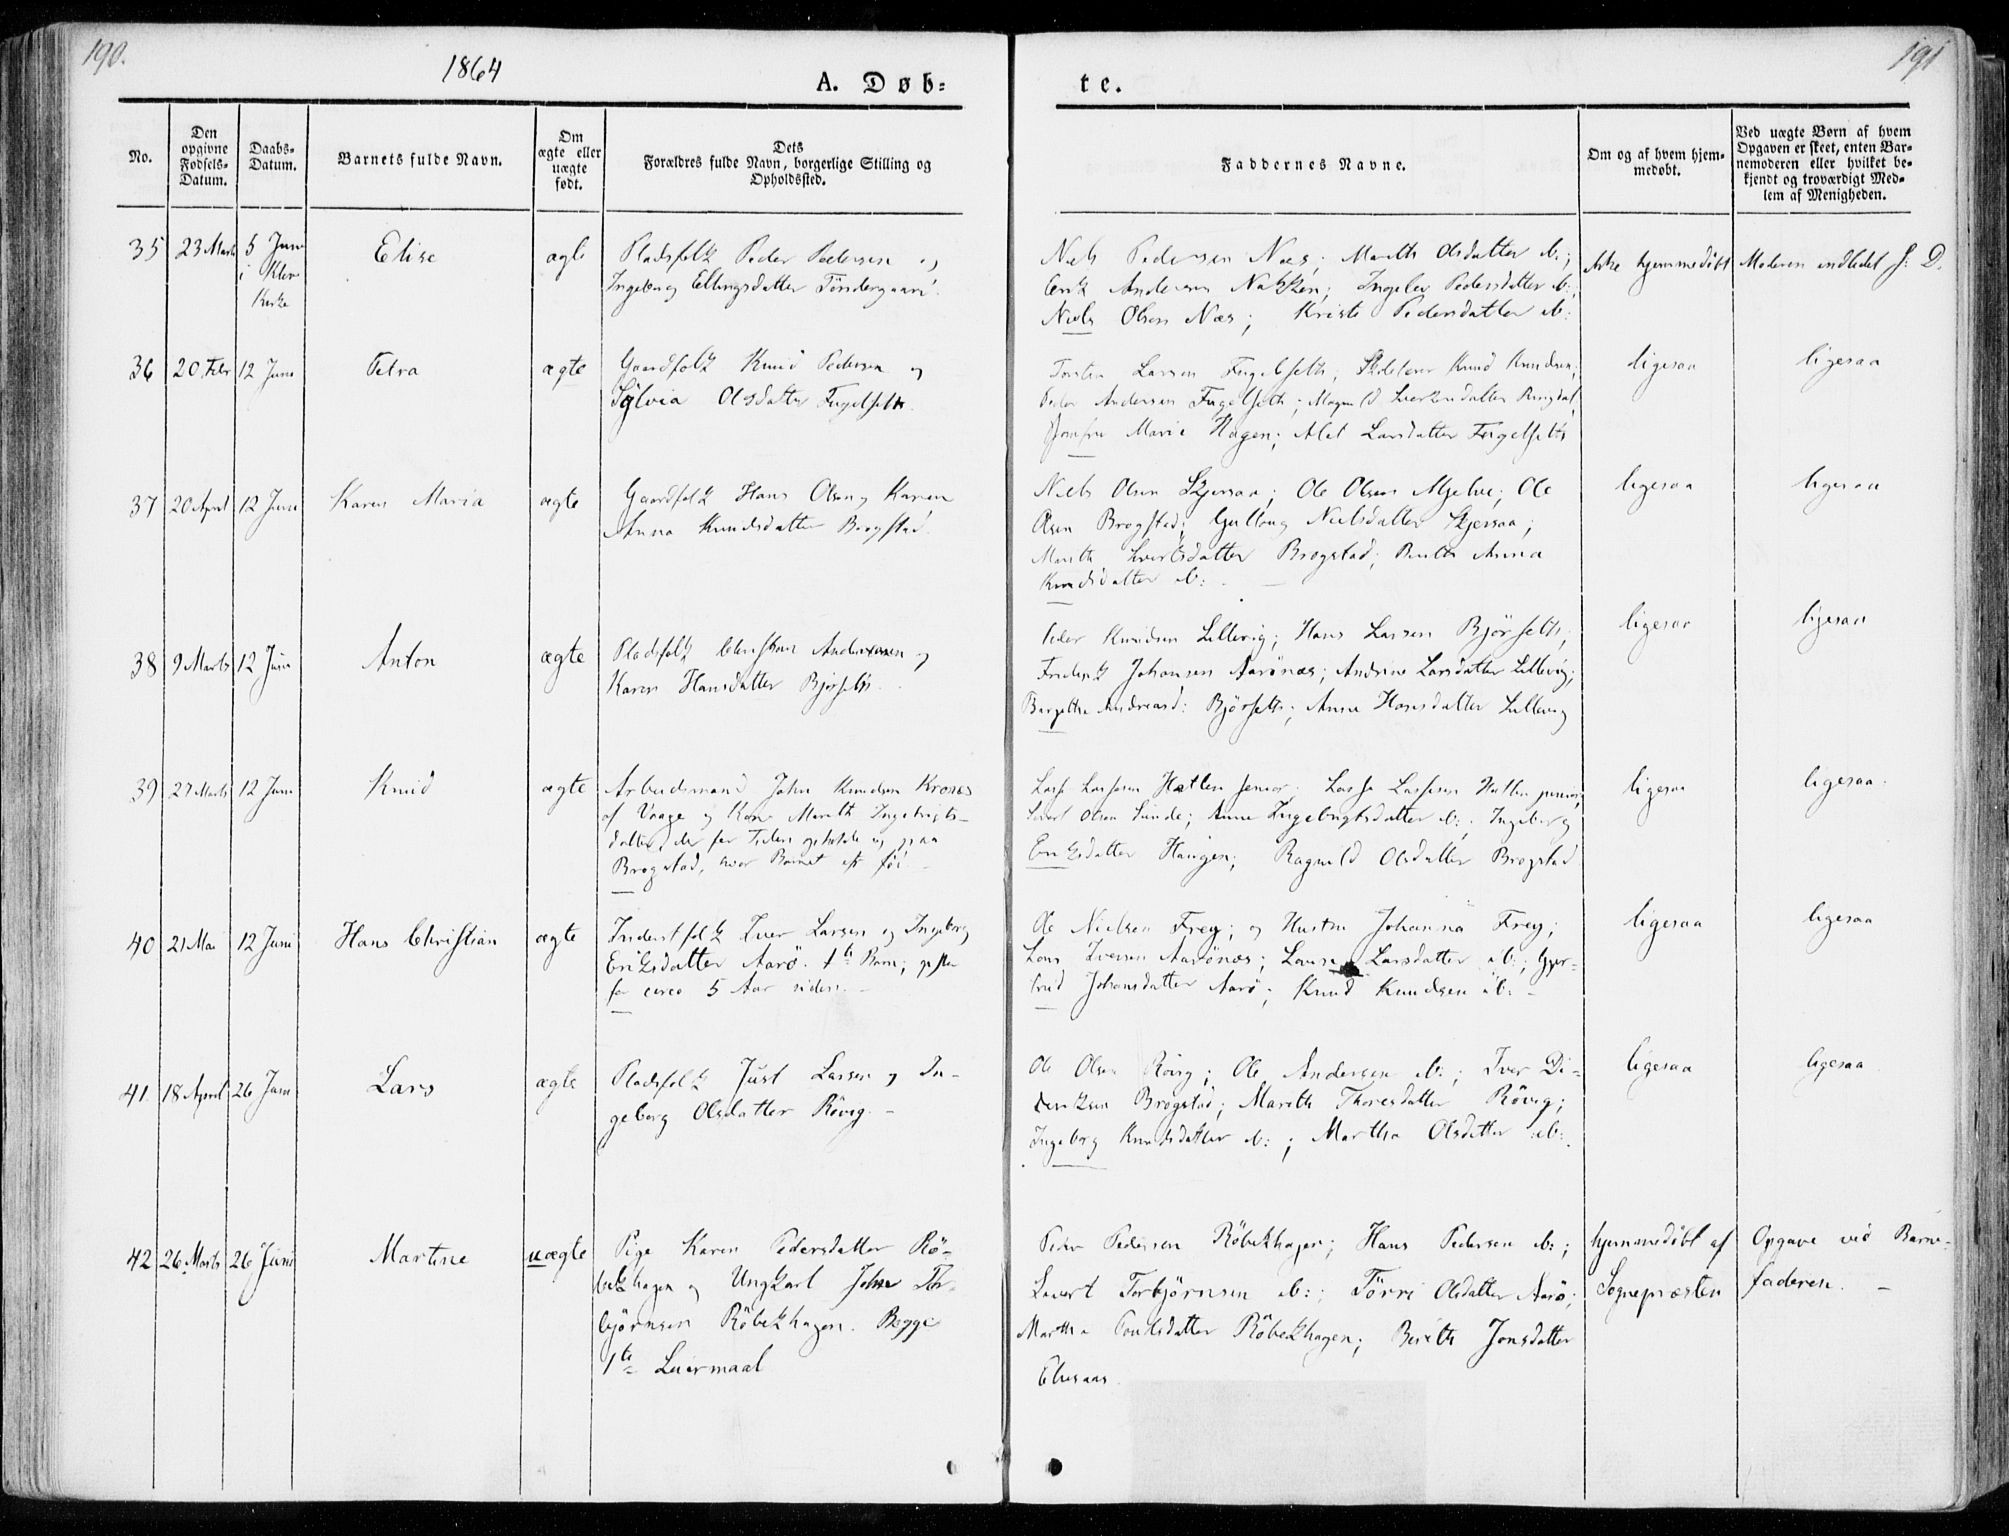 190.
1864
A. Døb-
te.
191
No.
Den
opgivne
Fødsels-
Datum.
Daabs-
Datum.
Barnets fulde Navn.
Om
ægte eller
uægte
født.
Dets
Forældres fulde Navn, borgerlige Stilling og
Opholdssted.
Faddernes Navne.
Om og af hvem hjem-
medøbt.
Ved uægte Børn af hvem
Opgaven er skeet, enten Bar-
nemoderen eller hvilket be-
kjendt og troværdigt Med-
lem af Menigheden.
35
23 Marts
5 Juni
i Klev
Kirke
Elise
ægte
Pladsfolk Peder Pedersen og
Ingeborg Ellingsdatter Töndergaard
Niels Pedersen Næs; Marith Olsdatter ib:;
Erik Andersen Nakken; Ingebor Pedersdatter ib:;
Niels Olsen Næs; Kristi Pedersdatter ib:
ikke hjemmedöbt
Moderen indledet s: D.
36
20 Febr
12 Juni
Petra
ægte
Gaardfolk Knud Pedersen og
Sylvia Olsdatter Fugelseth
Torsten Larsen Fugelseth; Skolelærer Knud Knudsen;
Peder Andersen Fugelseth; Magnild Sivertsdatter Ringdal;
Jomfru Marie Hagen; Alet Larsdatter Fugelseth
ligesaa
ligesaa
37
20 April
12 Juni
Karen Maria
ægte
Gaardfolk Hans Olsen og Karen
Anna Knudsdatter Brogstad.
Niels Olsen Skjersaa; Ole Olsen Mjelve; Ole
Olsen Brogstad; Gullaug Nielsdatter Skjersaa;
Marith Sivertsdatter Brogstad; Anna
Knudsdatter ib:
ligesaa
ligesaa
38
9 Marts
12 Juni
Anton
ægte
Pladsfolk Christian Andreasen og
Karen Hansdatter Björseth
Peder Knudsen Lillevig; Hans Larsen Björseth;
Frederik Johansen Aarönæs; Andrine Larsdatter Lillevig;
Bergithe Andreasd: Björseth; Anne Hansdatter Lillevig
ligesaa
ligesaa
39
27 Marts
12 Juni
Knud
ægte
Arbeidsmand John Knudsen Kronæs
af Vaage og Kone Marith Ingebrigts-
datter, der for Tiden opholde sig paa
Brogstad, hvor Barnet er født
Lasse Lassesen Hatlen senior; Lasse Lassesen Hatlen junior;
Sivert Olsen Sunde; Anne Ingebrigtsdatter ib:; Ingeborg
Eriksdatter Haugen; Ragnild Olsdatter Brogstad
ligesaa
ligesaa.
40
21 Mai
12 Juni
Hans Christian
ægte
Inderstfolk Iver Larsen og Ingeborg
Eriksdatter Aarö. 1te Barn; gifte
for circa 5 Aar siden.
Ole Nielsen Frey; og Hustru Johanna Frey;
Lars Iversen Aarönæs; Lovise Larsdatter ib:; Gjer-
trud Johansdatter Aarö; Knud Knudsen ib:
ligesaa
ligesaa
41
18 April
26 Juni
Lars
ægte
Pladsfolk Just Larsen og In-
geborg Olsdatter Rövig.
Ole Olsen Rövig; Ole Andersen ib:; Iver Di-
deriksen Brogstad; Marith Thoresdatter Rövig;
Ingeborg Knudsdatter ib:; Martha Olsdatter ib:
ligesaa
ligesaa
42
26 Marts
26 Juni
Martine
uægte
Pige Karen Pedersdatter Rö-
bekhagen og Ungkarl John Tor-
björnsen Röbekhagen. Begge
1te Leiermaal
Peder Pedersen Röbekhagen; Hans Pedersen ib:;
Sivert Torbjörnsen ib:; Törri Olsdatter Aarö;
Martha Röbekhagen; Berith Jonsdatter
hjemmedöbt af
Sognepræsten
Opgave ved Barne-
faderen.